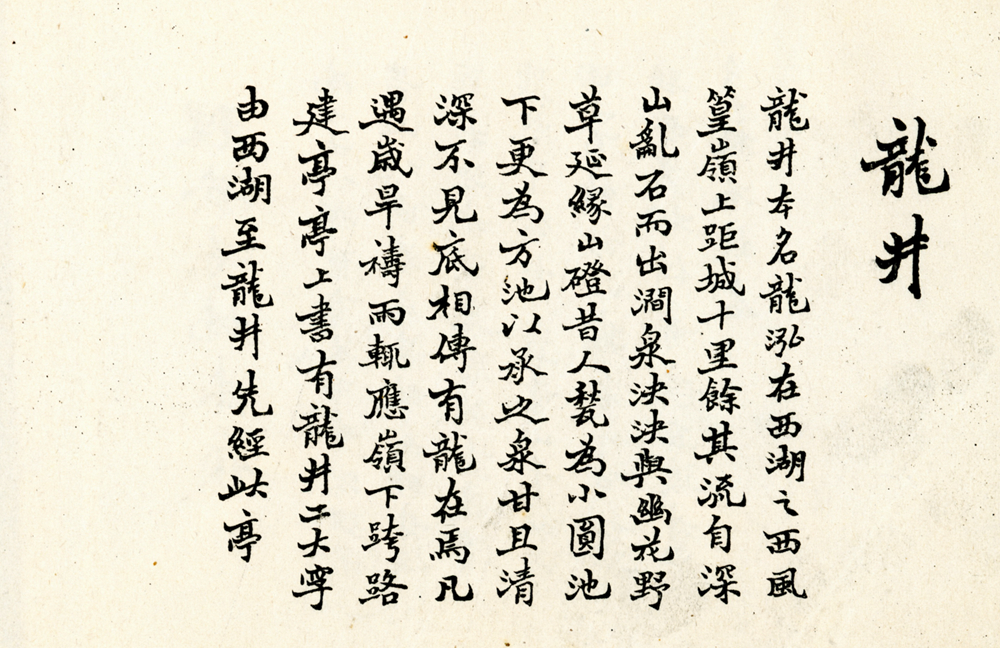 龍井
龍井本名龍泓在西湖之西風
篁嶺上距城十里餘其流自深
山亂石而出澗泉泱泱與幽花野
草延緣山磴昔人甃為小圓池
下更為方池以承之泉甘且清
深不見底相傳有龍在焉凡
遇歲旱禱雨輒應嶺下跨路
建亭亭上書有龍井二大字
由西湖至龍井先經此亭